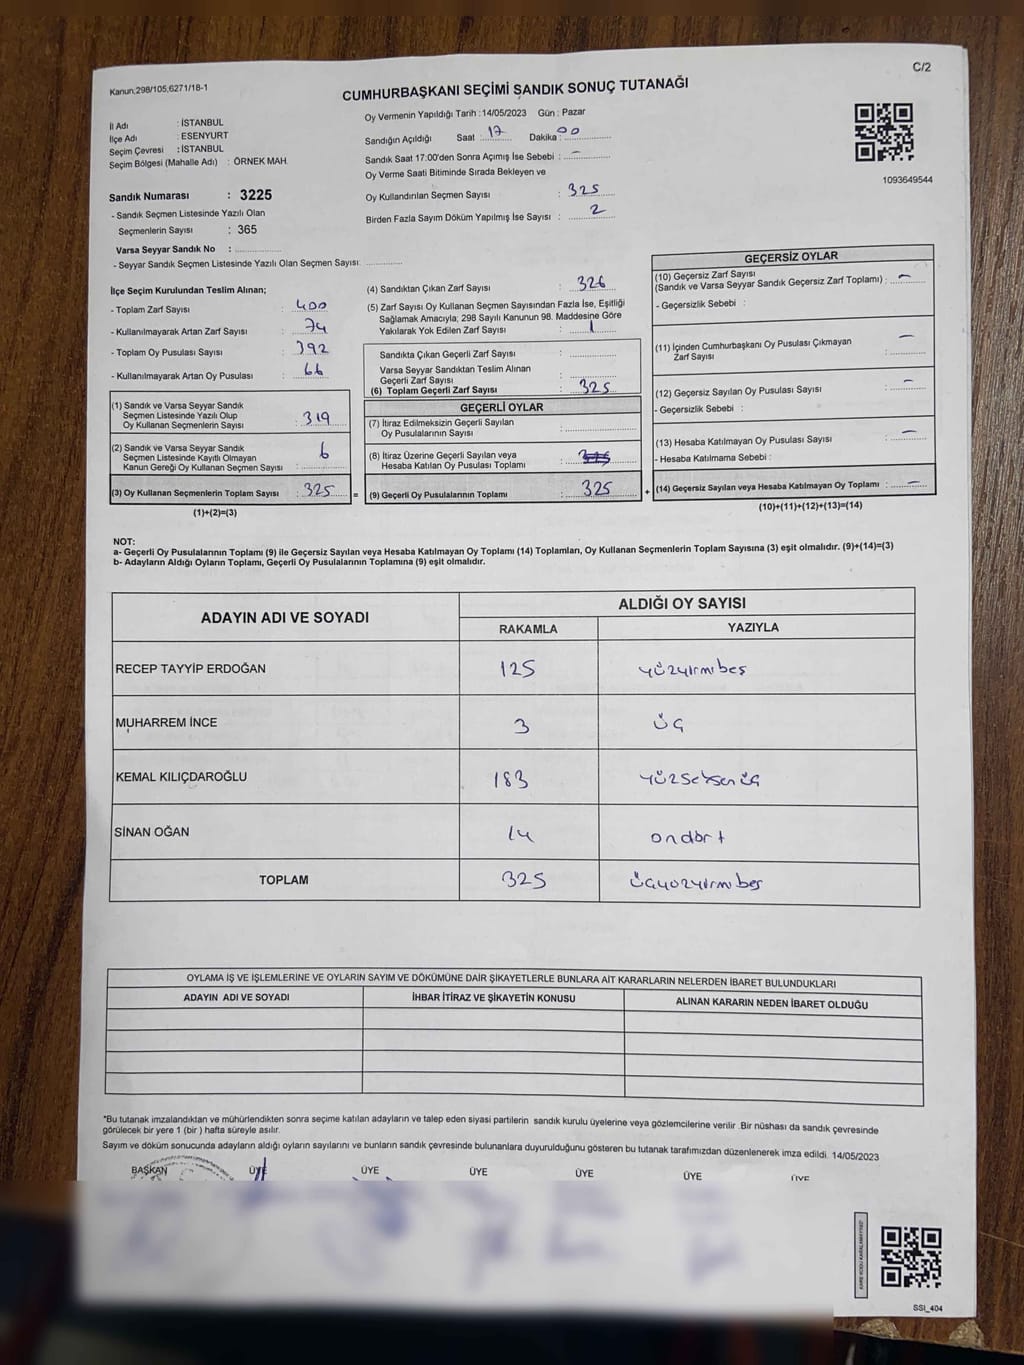 Kanun;298/105,6271/18-1
C/2
CUMHURBAŞKANI SEÇİMİ SANDIK SONUÇ TUTANAĞI
İl Adı : İSTANBUL
İlçe Adı : ESENYURT
Seçim Çevresi : İSTANBUL
Seçim Bölgesi (Mahalle Adı) : ÖRNEK MAH.
Sandık Numarası : 3225
- Sandık Seçmen Listesinde Yazılı Olan
Seçmenlerin Sayısı : 365
Varsa Seyyar Sandık No :
- Seyyar Sandık Seçmen Listesinde Yazılı Olan Seçmen Sayısı:
Oy Vermenin Yapıldığı Tarih : 14/05/2023 Gün : Pazar
Sandığın Açıldığı Saat : 17 Dakika : 00
Sandık Saat 17:00'den Sonra Açımış İse Sebebi : -
Oy Verme Saati Bitiminde Sırada Bekleyen ve
Oy Kullandırılan Seçmen Sayısı : 325
Birden Fazla Sayım Döküm Yapılmış İse Sayısı : 2
1093649544
İlçe Seçim Kurulundan Teslim Alınan;
- Toplam Zarf Sayısı : 400
- Kullanılmayarak Artan Zarf Sayısı : 74
- Toplam Oy Pusulası Sayısı : 392
- Kullanılmayarak Artan Oy Pusulası : 66
(1) Sandık ve Varsa Seyyar Sandık
Seçmen Listesinde Yazılı Olup
Oy Kullanan Seçmenlerin Sayısı : 319
(2) Sandık ve Varsa Seyyar Sandık
Seçmen Listesinde Kayıtlı Olmayan
Kanun Gereği Oy Kullanan Seçmen Sayısı : 6
(3) Oy Kullanan Seçmenlerin Toplam Sayısı : 325
(1)+(2)=(3)
=
(4) Sandıktan Çıkan Zarf Sayısı : 326
(5) Zarf Sayısı Oy Kullanan Seçmen Sayısından Fazla İse, Eşitliği
Sağlamak Amacıyla; 298 Sayılı Kanunun 98. Maddesine Göre
Yakılarak Yok Edilen Zarf Sayısı : 1
Sandıkta Çıkan Geçerli Zarf Sayısı :
Varsa Seyyar Sandıktan Teslim Alınan
Geçerli Zarf Sayısı :
(6) Toplam Geçerli Zarf Sayısı : 325
GEÇERLİ OYLAR
(7) İtiraz Edilmeksizin Geçerli Sayılan
Oy Pusulalarının Sayısı :
(8) İtiraz Üzerine Geçerli Sayılan veya
Hesaba Katılan Oy Pusulası Toplamı : 325
(9) Geçerli Oy Pusulalarının Toplamı : 325
+
GEÇERSİZ OYLAR
(10) Geçersiz Zarf Sayısı
(Sandık ve Varsa Seyyar Sandık Geçersiz Zarf Toplamı) : -
- Geçersizlik Sebebi :
(11) İçinden Cumhurbaşkanı Oy Pusulası Çıkmayan -
Zarf Sayısı
(12) Geçersiz Sayılan Oy Pusulası Sayısı : -
- Geçersizlik Sebebi :
(13) Hesaba Katılmayan Oy Pusulası Sayısı : -
- Hesaba Katılmama Sebebi :
(14) Geçersiz Sayılan veya Hesaba Katılmayan Oy Toplamı : -
(10)+(11)+(12)+(13)=(14)
NOT:
a- Geçerli Oy Pusulalarının Toplamı (9) ile Geçersiz Sayılan veya Hesaba Katılmayan Oy Toplamı (14) Toplamları, Oy Kullanan Seçmenlerin Toplam Sayısına (3) eşit olmalıdır. (9)+(14)=(3)
b- Adayların Aldığı Oyların Toplamı, Geçerli Oy Pusulalarının Toplamına (9) eşit olmalıdır.
ADAYIN ADI VE SOYADI
ALDIĞI OY SAYISI
RAKAMLA YAZIYLA
RECEP TAYYİP ERDOĞAN 125 yüzyirmibeş
MUHARREM İNCE 3 üç
KEMAL KILIÇDAROĞLU 183 yüzseksenüç
SİNAN OĞAN 14 ondört
TOPLAM 325 üçyüzyirmibeş
OYLAMA İŞ VE İŞLEMLERİNE VE OYLARIN SAYIM VE DÖKÜMÜNE DAİR ŞİKAYETLERLE BUNLARA AİT KARARLARIN NELERDEN İBARET BULUNDUKLARI
ADAYIN ADI VE SOYADI İHBAR İTİRAZ VE ŞİKAYETİN KONUSU ALINAN KARARIN NEDEN İBARET OLDUĞU
*Bu tutanak imzalandıktan ve mühürlendikten sonra seçime katılan adayların ve talep eden siyasi partilerin sandık kurulu üyelerine veya gözlemcilerine verilir .Bir nüshası da sandık çevresinde
görülecek bir yere 1 (bir ) hafta süreyle asılır.
Sayım ve döküm sonucunda adayların aldığı oyların sayılarını ve bunların sandık çevresinde bulunanlara duyurulduğunu gösteren bu tutanak tarafımızdan düzenlenerek imza edildi. 14/05/2023
BAŞKAN ÜYE ÜYE ÜYE ÜYE ÜYE ÜYE
SSI_404